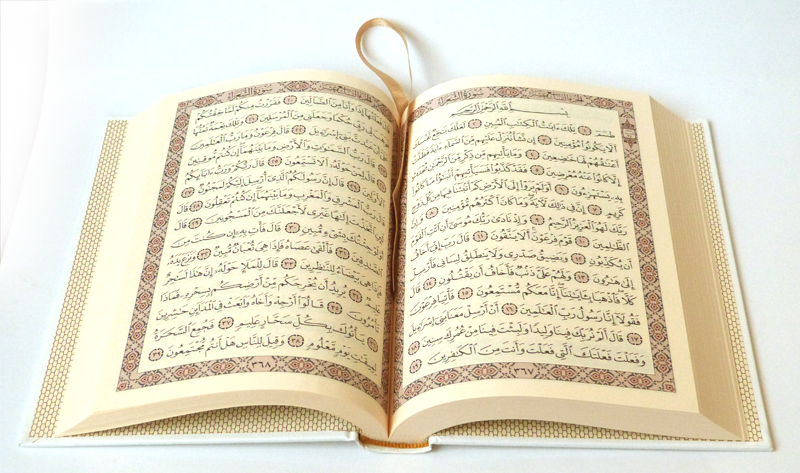 سُورَةُ الشُّعَرَاءِ
بِسْمِ اللَّهِ الرَّحْمَٰنِ الرَّحِيمِ
طسٓمٓ ١ تِلْكَ ءَايَٰتُ ٱلْكِتَٰبِ ٱلْمُبِينِ ٢ لَعَلَّكَ بَٰخِعٌ نَّفْسَكَ
أَلَّا يَكُونُوا۟ مُؤْمِنِينَ ٣ إِن نَّشَأْ نُنَزِّلْ عَلَيْهِم مِّنَ ٱلسَّمَآءِ ءَايَةً فَظَلَّتْ
أَعْنَٰقُهُمْ لَهَا خَٰضِعِينَ ٤ وَمَا يَأْتِيهِم مِّن ذِكْرٍ مِّنَ ٱلرَّحْمَٰنِ مُحْدَثٍ
إِلَّا كَانُوا۟ عَنْهُ مُعْرِضِينَ ٥ فَقَدْ كَذَّبُوا۟ فَسَيَأْتِيهِمْ أَنۢبَٰٓؤُا۟ مَا كَانُوا۟
بِهِۦ يَسْتَهْزِءُونَ ٦ أَوَلَمْ يَرَوْا۟ إِلَى ٱلْأَرْضِ كَمْ أَنۢبَتْنَا فِيهَا مِن كُلِّ زَوْجٍ
كَرِيمٍ ٧ إِنَّ فِى ذَٰلِكَ لَءَايَةً وَمَا كَانَ أَكْثَرُهُم مُّؤْمِنِينَ ٨ وَإِنَّ
رَبَّكَ لَهُوَ ٱلْعَزِيزُ ٱلرَّحِيمُ ٩ وَإِذْ نَادَىٰ رَبُّكَ مُوسَىٰٓ أَنِ ٱئْتِ ٱلْقَوْمَ
ٱلظَّٰلِمِينَ ١٠ قَوْمَ فِرْعَوْنَ أَلَا يَتَّقُونَ ١١ قَالَ رَبِّ إِنِّىٓ أَخَافُ
أَن يُكَذِّبُونِ ١٢ وَيَضِيقُ صَدْرِى وَلَا يَنطَلِقُ لِسَانِى فَأَرْسِلْ
إِلَىٰ هَٰرُونَ ١٣ وَلَهُمْ عَلَىَّ ذَنۢبٌ فَأَخَافُ أَن يَقْتُلُونِ ١٤ قَالَ
كَلَّا فَٱذْهَبَا بِـَٔايَٰتِنَآ إِنَّا مَعَكُم مُّسْتَمِعُونَ ١٥ فَأْتِيَا فِرْعَوْنَ
فَقُولَآ إِنَّا رَسُولُ رَبِّ ٱلْعَٰلَمِينَ ١٦ أَنْ أَرْسِلْ مَعَنَا بَنِىٓ إِسْرَٰٓءِيلَ
١٧ قَالَ أَلَمْ نُرَبِّكَ فِينَا وَلِيدًا وَلَبِثْتَ فِينَا مِنْ عُمُرِكَ سِنِينَ ١٨
وَفَعَلْتَ فَعْلَتَكَ ٱلَّتِى فَعَلْتَ وَأَنتَ مِنَ ٱلْكَٰفِرِينَ ١٩
٣٦٧
سُورَةُ الشُّعَرَاءِ
قَالَ فَعَلْتُهَآ إِذًا وَأَنَا۠ مِنَ ٱلضَّآلِّينَ ٢٠ فَفَرَرْتُ مِنكُمْ لَمَّا خِفْتُكُمْ
فَوَهَبَ لِى رَبِّى حُكْمًا وَجَعَلَنِى مِنَ ٱلْمُرْسَلِينَ ٢١ وَتِلْكَ نِعْمَةٌ تَمُنُّهَا
عَلَىَّ أَنْ عَبَّدتَّ بَنِىٓ إِسْرَٰٓءِيلَ ٢٢ قَالَ فِرْعَوْنُ وَمَا رَبُّ ٱلْعَٰلَمِينَ
٢٣ قَالَ رَبُّ ٱلسَّمَٰوَٰتِ وَٱلْأَرْضِ وَمَا بَيْنَهُمَآ إِن كُنتُم مُّوقِنِينَ
٢٤ قَالَ لِمَنْ حَوْلَهُۥٓ أَلَا تَسْتَمِعُونَ ٢٥ قَالَ رَبُّكُمْ وَرَبُّ ءَابَآئِكُمُ
ٱلْأَوَّلِينَ ٢٦ قَالَ إِنَّ رَسُولَكُمُ ٱلَّذِىٓ أُرْسِلَ إِلَيْكُمْ لَمَجْنُونٌ ٢٧
قَالَ رَبُّ ٱلْمَشْرِقِ وَٱلْمَغْرِبِ وَمَا بَيْنَهُمَآ إِن كُنتُمْ تَعْقِلُونَ ٢٨ قَالَ
لَئِنِ ٱتَّخَذْتَ إِلَٰهًا غَيْرِى لَأَجْعَلَنَّكَ مِنَ ٱلْمَسْجُونِينَ ٢٩ قَالَ
أَوَلَوْ جِئْتُكَ بِشَىْءٍ مُّبِينٍ ٣٠ قَالَ فَأْتِ بِهِۦٓ إِن كُنتَ مِنَ
ٱلصَّٰدِقِينَ ٣١ فَأَلْقَىٰ عَصَاهُ فَإِذَا هِىَ ثُعْبَانٌ مُّبِينٌ ٣٢ وَنَزَعَ يَدَهُۥ
فَإِذَا هِىَ بَيْضَآءُ لِلنَّٰظِرِينَ ٣٣ قَالَ لِلْمَلَإِ حَوْلَهُۥٓ إِنَّ هَٰذَا لَسَٰحِرٌ
عَلِيمٌ ٣٤ يُرِيدُ أَن يُخْرِجَكُم مِّنْ أَرْضِكُم بِسِحْرِهِۦ فَمَاذَا
تَأْمُرُونَ ٣٥ قَالُوٓا۟ أَرْجِهْ وَأَخَاهُ وَٱبْعَثْ فِى ٱلْمَدَآئِنِ حَٰشِرِينَ
٣٦ يَأْتُوكَ بِكُلِّ سَحَّارٍ عَلِيمٍ ٣٧ فَجُمِعَ ٱلسَّحَرَةُ
لِمِيقَٰتِ يَوْمٍ مَّعْلُومٍ ٣٨ وَقِيلَ لِلنَّاسِ هَلْ أَنتُم مُّجْتَمِعُونَ ٣٩
٣٦٨